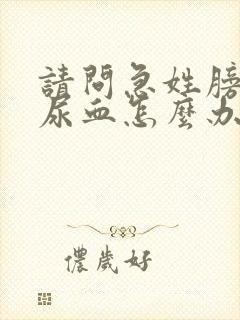 請問急姓膀
尿血怎麼办
儂歲好